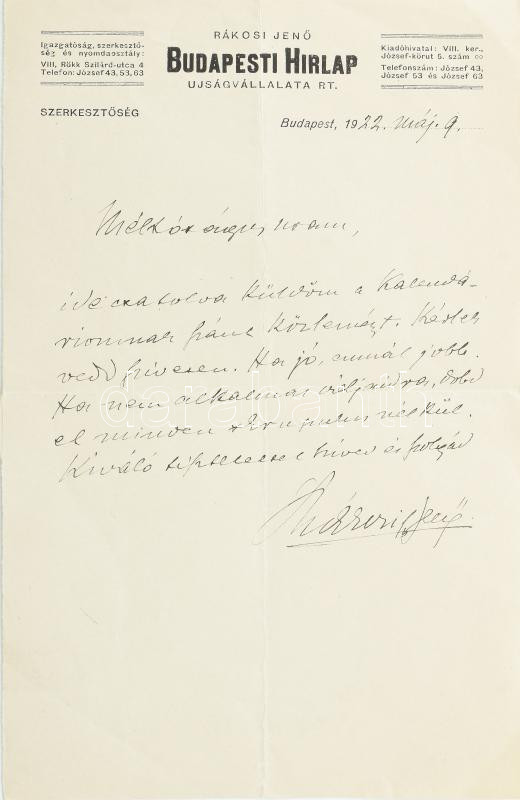 RÁKOSI JENŐ
BUDAPESTI HIRLAP
UJSÁGVÁLLALATA RT.
Igazgatóság, szerkesztő-
ség és nyomdaosztály:
VIII, Rökk Szilárd-utca 4
Telefon: József 43, 53, 63
Kiadóhivatal: VIII. ker.,
József-körut 5. szám
Telefonszám: József 43,
József 53 és József 63
SZERKESZTŐSÉG
Budapest, 1922. máj. 9.
Méltóságos uram,
ide csatolva küldöm a Kalendá-
riomnak szánt közleményt. Kérlek
vedd szivesen. Ha jó, annál jobb.
Ha nem alkalmas céljaidra, dobd
el minden skrupulus nélkül.
Kiváló tisztelettel hived és szolgád
Rákosi Jenő
darabanth